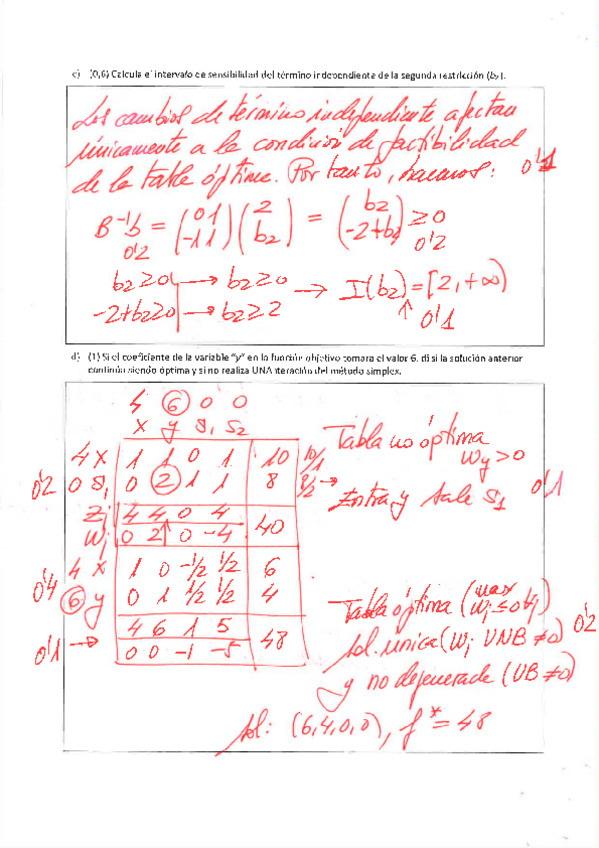 c) (0,6) Calcula el intervalo de sensibilidad del término independiente de la segunda restricción (b₂).
Los cambios de término independiente afectan
únicamente a la condición de factibilidad
de la tabla óptima. Por tanto, hacemos: 0'1
B⁻¹b = (0 1 / -1 1) (2 / b₂) = (b₂ / -2+b₂) ≥ 0
0'2 0'2
b₂≥0 → b₂≥0
-2+b₂≥0 → b₂≥2 → I(b₂) = [2, +∞)
↑ 0'1
d) (1) Si el coeficiente de la variable "y" en la función objetivo tomara el valor 6, di si la solución anterior
continúa siendo óptima y si no realiza UNA iteración del método simplex.
4 6 0 0
x y S₁ S₂
4 x 1 1 0 1 10 10/1
0'2 0 S₁ 0 2 1 1 8 8/2 →
Zj 4 4 0 4 40
Wj 0 2↑ 0 -4
Tabla no óptima
Wy > 0
Entra y sale S₁ 0'1
0'4 4 x 1 0 -1/2 1/2 6
6 y 0 1 1/2 1/2 4
0'1 → 4 6 1 5 48
0 0 -1 -5
Tabla óptima (max Wj ≤ 0 ∀j)
sol. única (Wj VNB ≠0) 0'2
y no degenerada (VB ≠0)
sol: (6,4,0,0), f* = 48